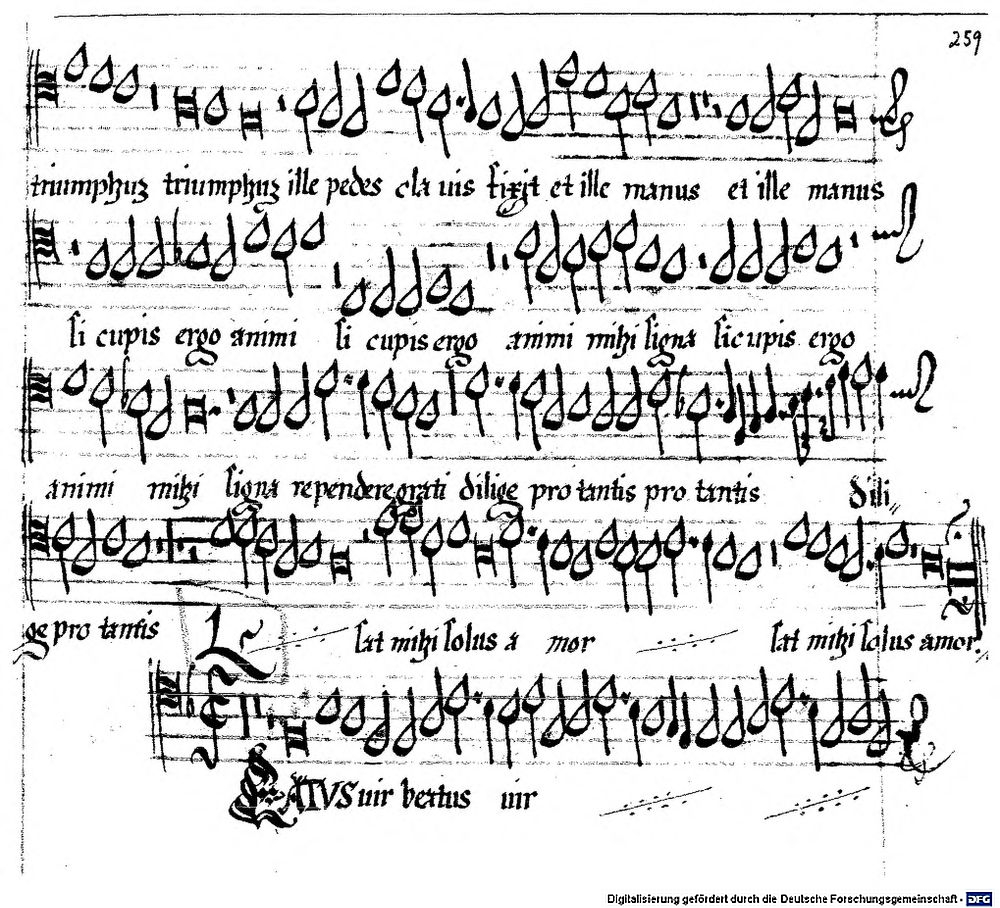 259
triumphus triumphus ille pedes cla uis fixit et ille manus et ille manus
si cupis ergo animi si cupis ergo animi mihi signa si cupis ergo
animi mihi signa rependere grati dilige pro tantis pro tantis dili
ge pro tantis sat mihi solus a mor sat mihi solus amor
ATVS uir beatus uir
Digitalisierung gefördert durch die Deutsche Forschungsgemeinschaft - DFG